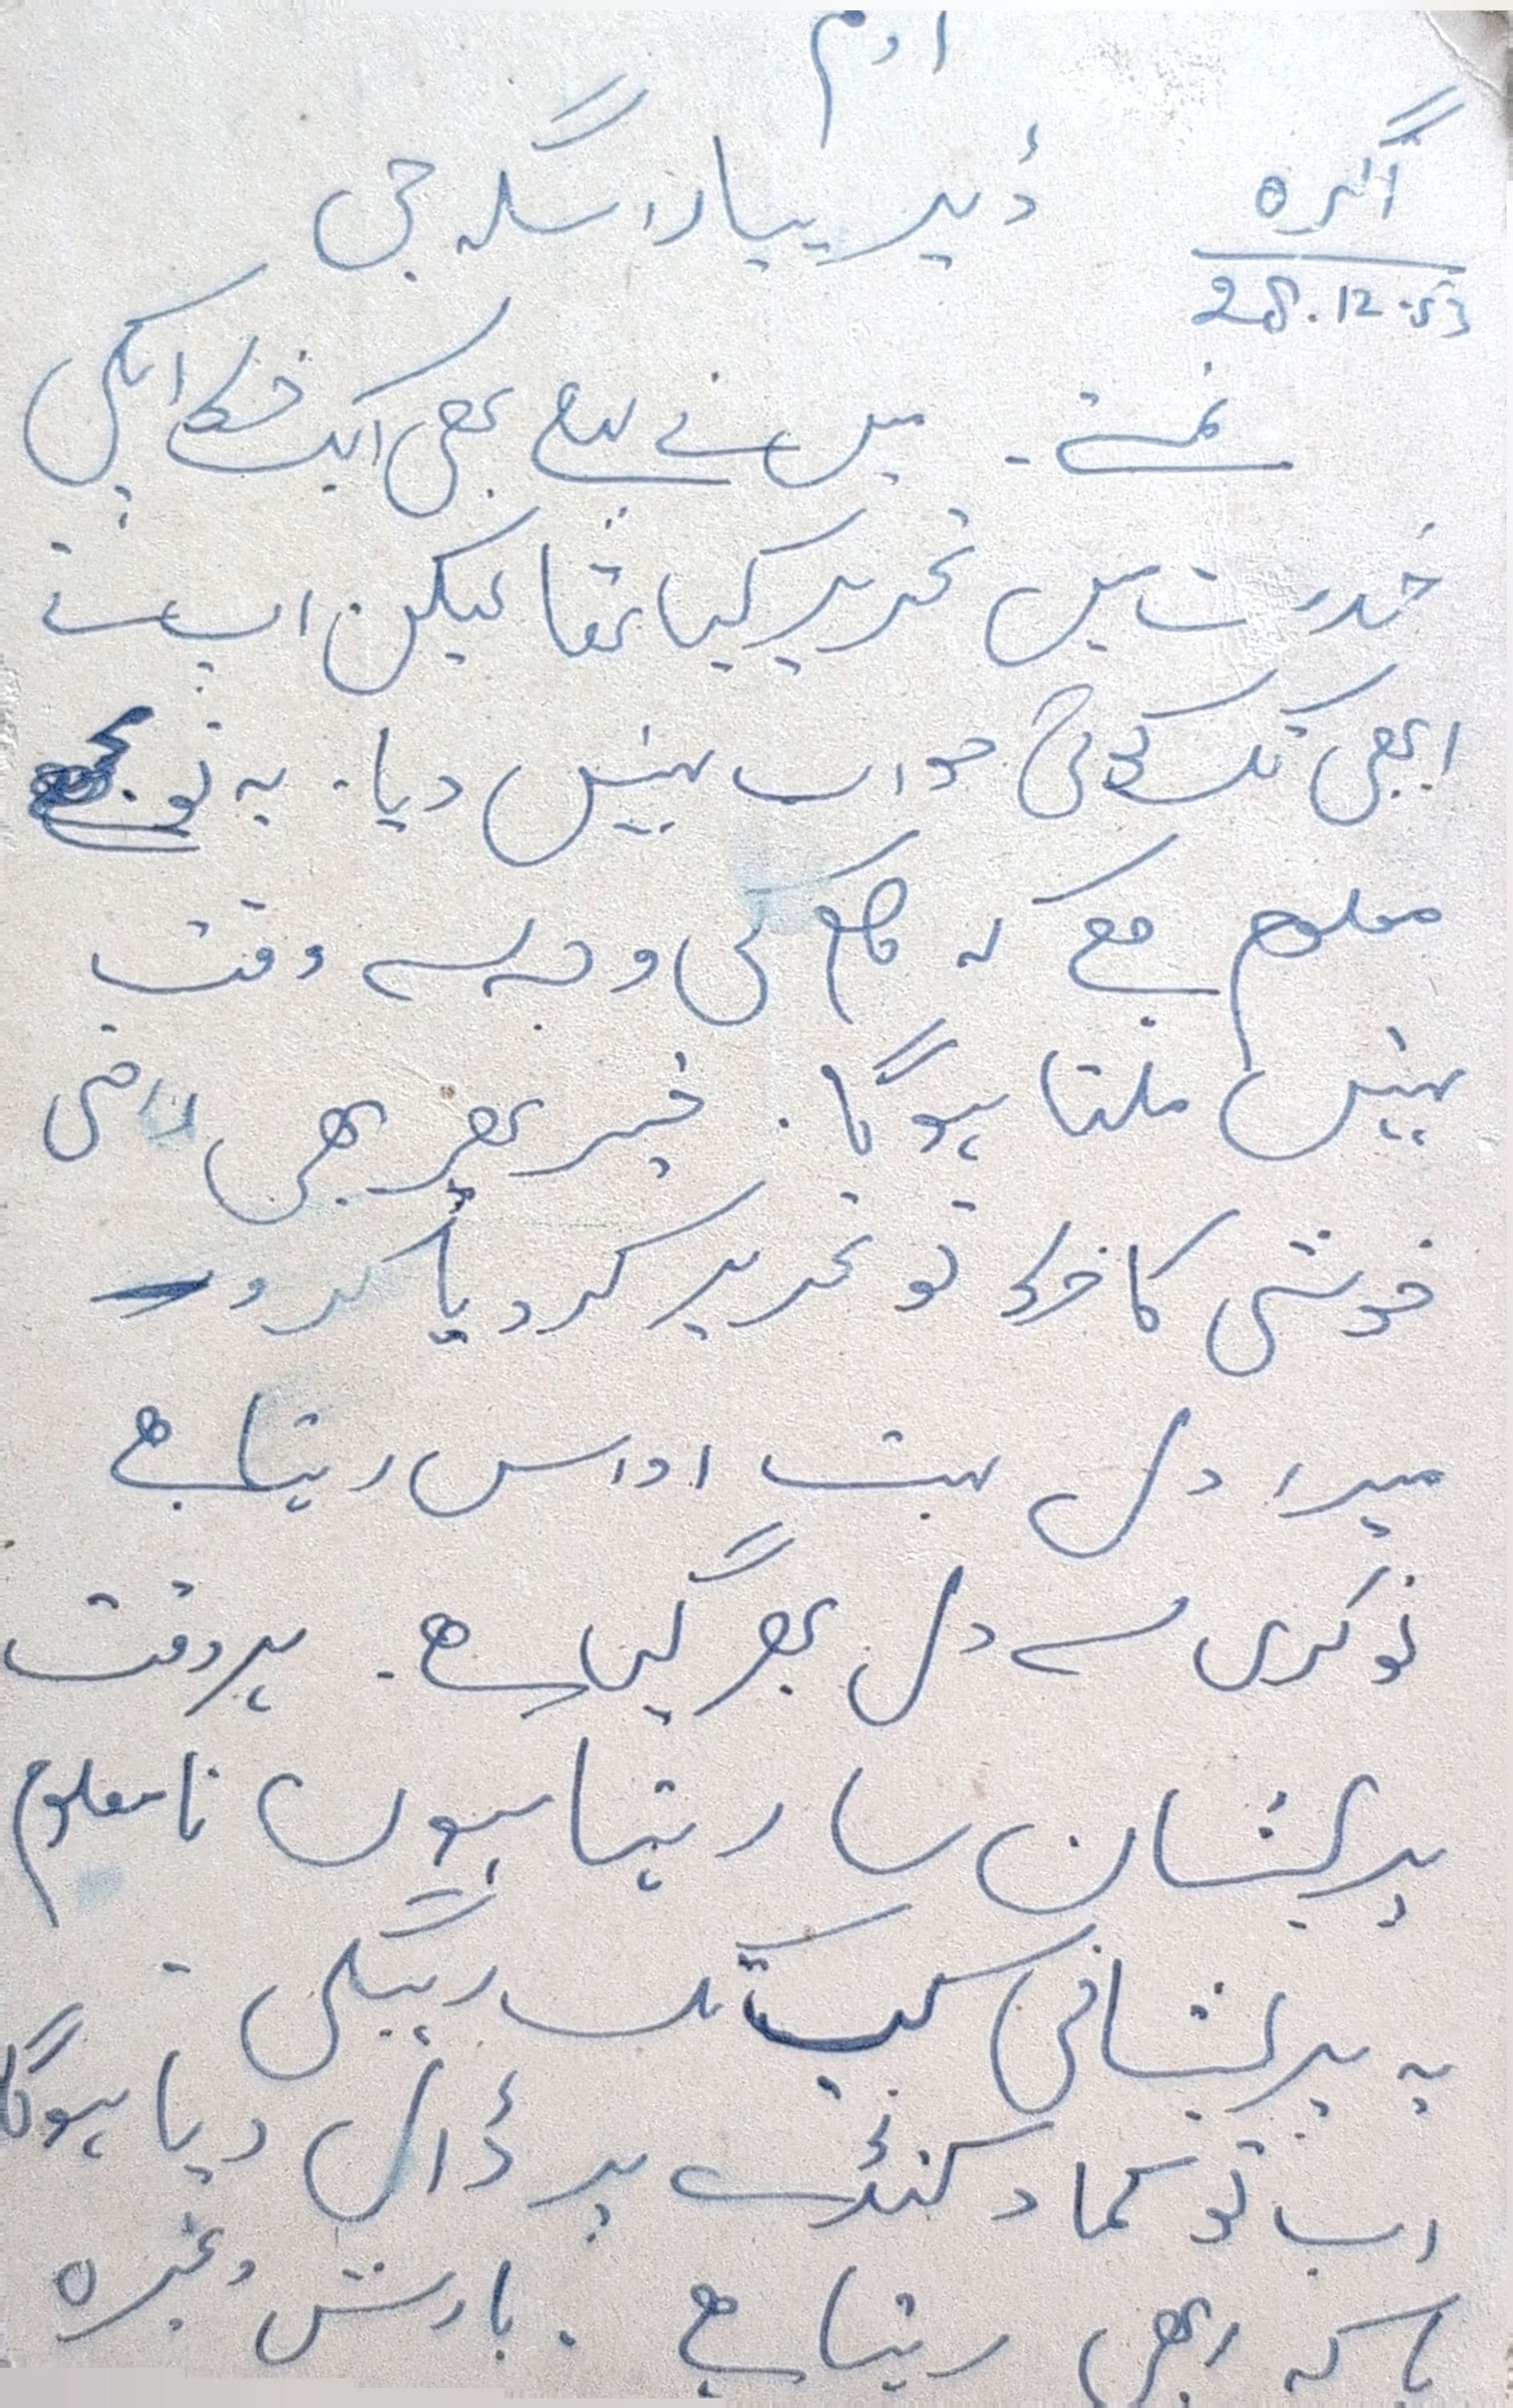 اوم
آگرہ
28.12.53
ڈیر پیارا سنگھ جی
نمستے ۔ میں نے پہلے بھی ایک خط آپکی
خدمت میں تحریر کیا تھا لیکن آپ نے
ابھی تک کوئی جواب نہیں دیا۔ یہ تو مجھے
معلوم ہے کہ کام کی وجہ سے وقت
نہیں ملتا ہوگا۔ خیر پھر بھی راضی
خوشی کا خط تو تحریر کر دیا کرو
میرا دل بہت اداس رہتا ہے
نوکری سے دل بھر گیا ہے۔ ہر وقت
پریشان سا رہتا ہوں نا معلوم
یہ پریشانی کب تک رہیگی ۔
اب تو کماد کنڈے پر ڈال دیا ہوگا
یا کہ ابھی رہتا ہے ۔ بارش وغیرہ